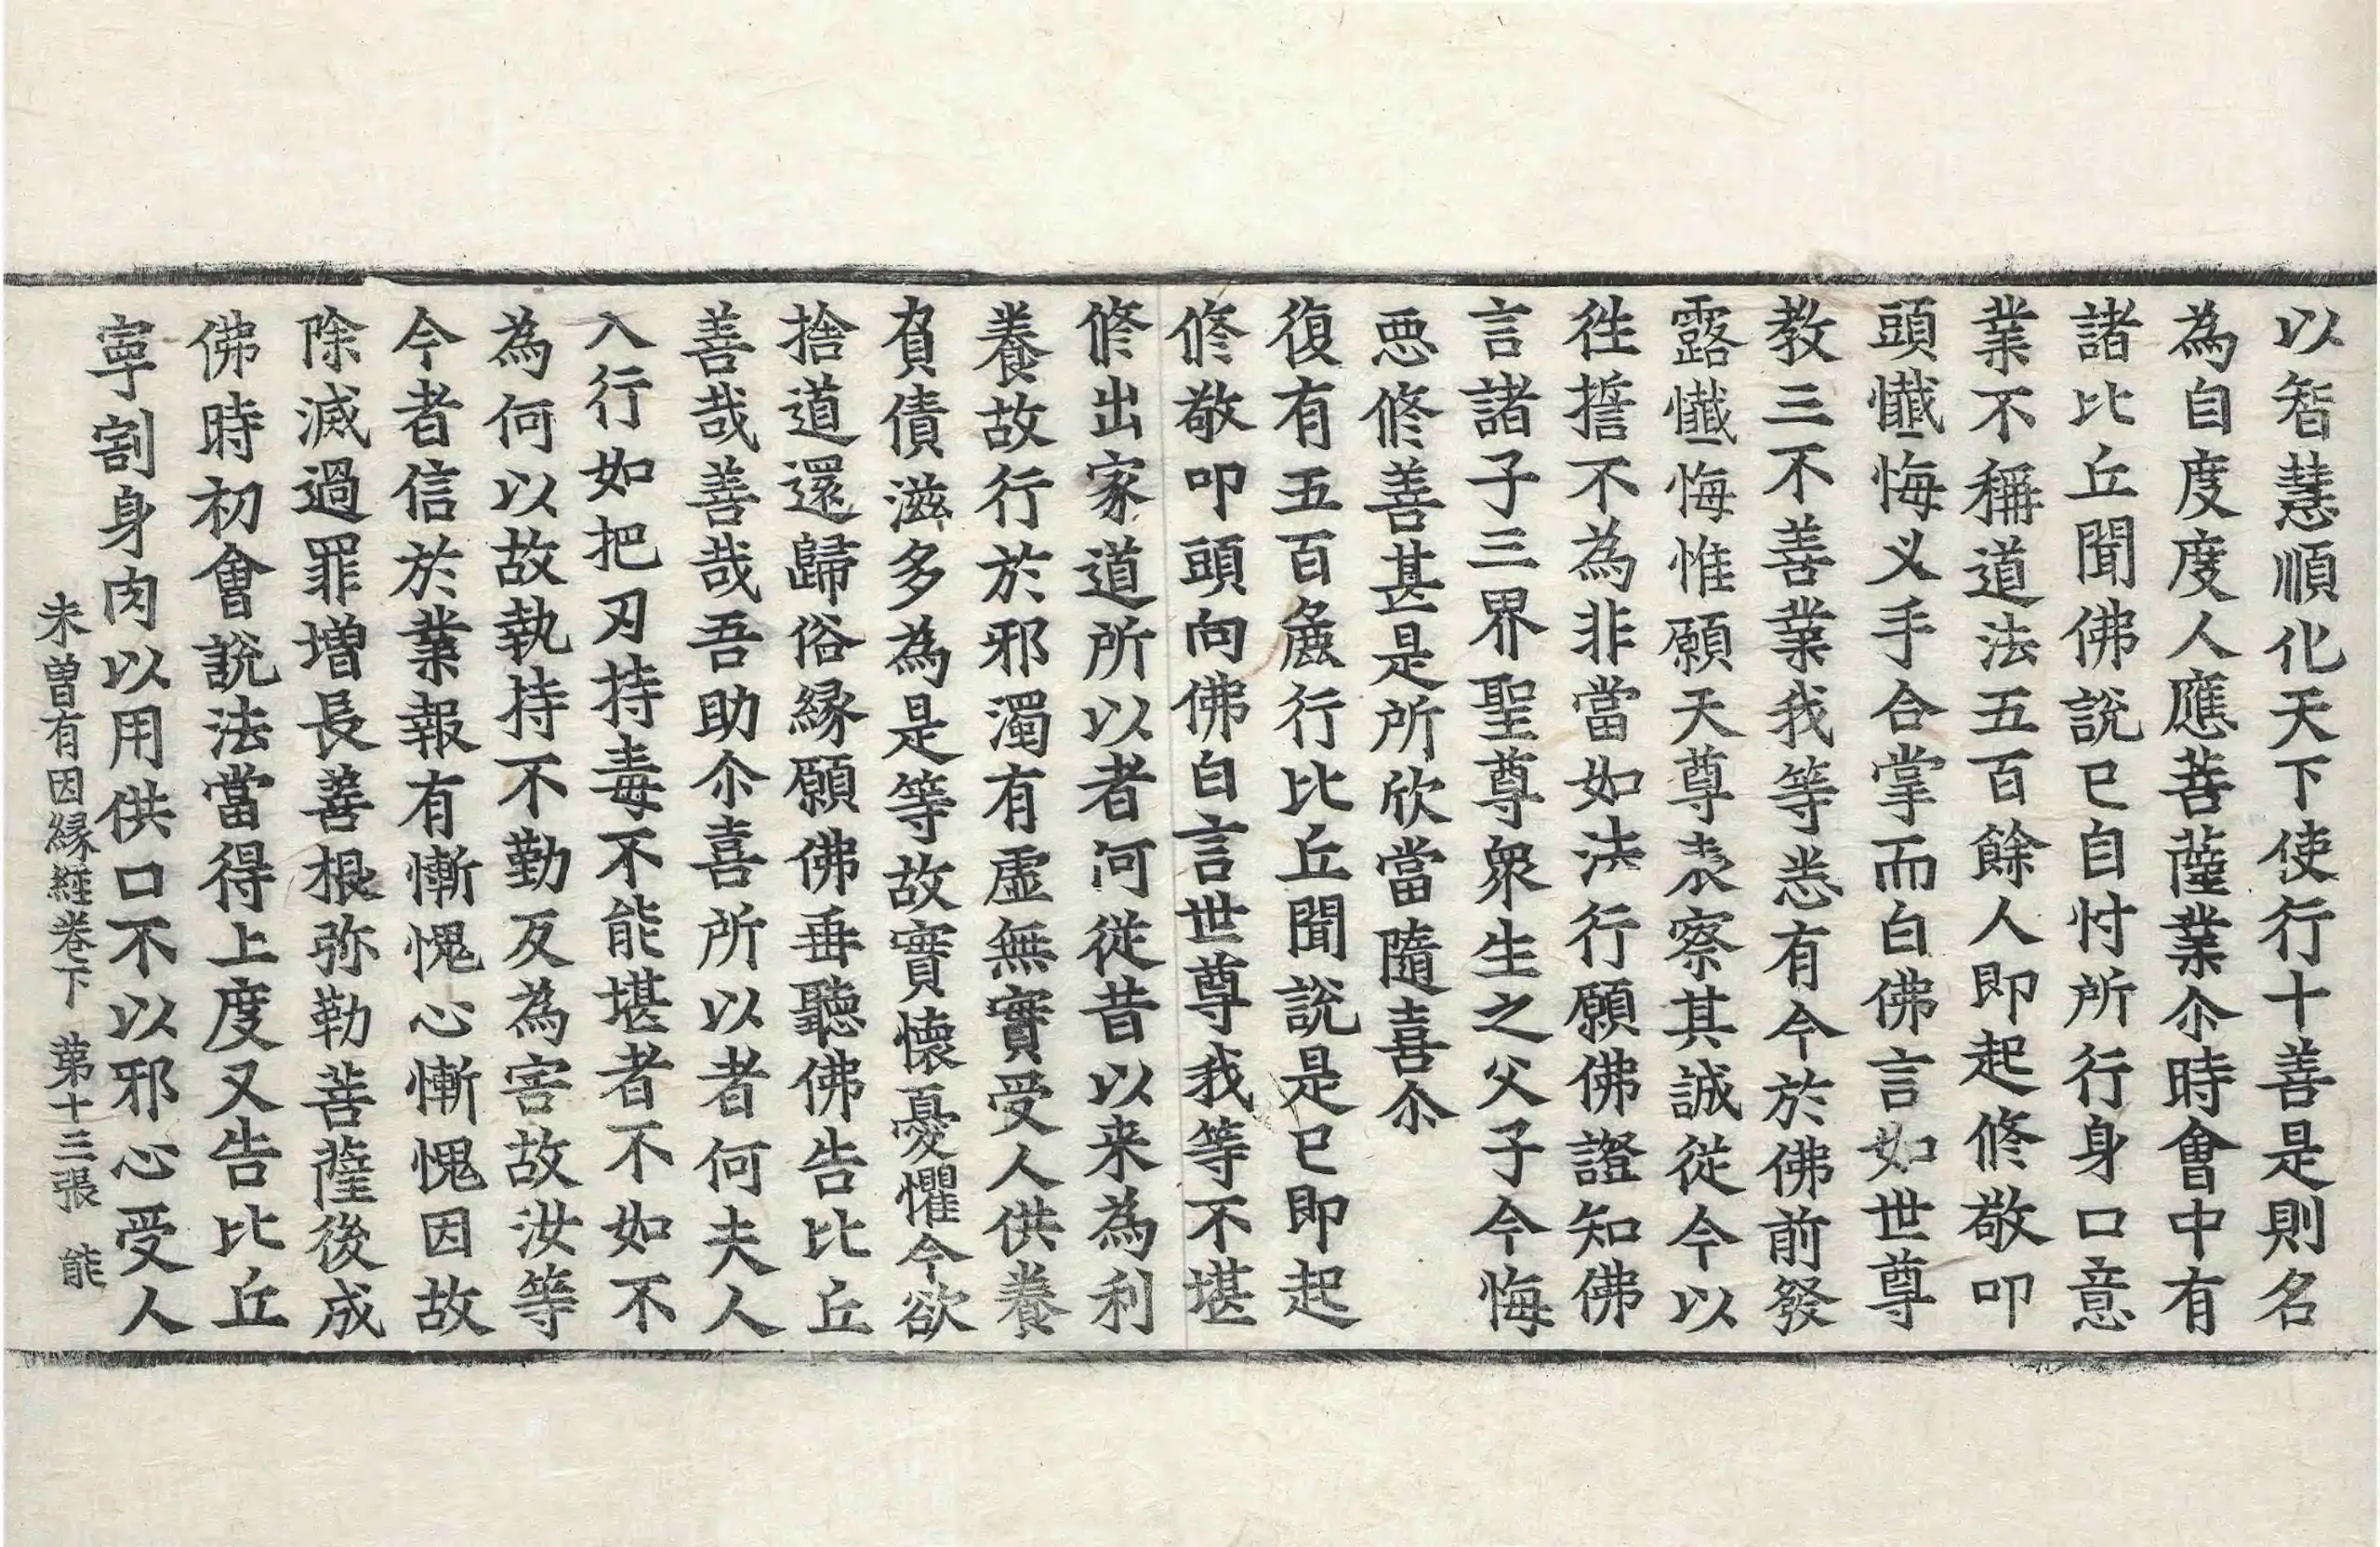 以智慧順化天下使行十善是則名
為自度度人應菩薩業尒時會中有
諸比丘聞佛說已自忖所行身口意
業不稱道法五百餘人即起修敬叩
頭懺悔义手合掌而白佛言如世尊
教三不善業我等悉有今於佛前發
露懺悔惟願天尊表察其誠從今以
徃誓不為非當如法行願佛證知佛
言諸子三界聖尊衆生之父子今悔
惡修善甚是所欣當隨喜尒
復有五百麁行比丘聞說是已即起
修敬叩頭向佛白言世尊我等不堪
修出家道所以者何從昔以来為利
養故行於邪濁有虛無實受人供養
負債滋多為是等故實懷憂懼今欲
捨道還歸俗緣願佛垂聽佛告比丘
善哉善哉吾助尒喜所以者何夫人
入行如把刃持毒不能堪者不如不
為何以故執持不勤反為害故汝等
今者信於業報有慚愧心慚愧因故
除滅過罪增長善根弥勒菩薩後成
佛時初會說法當得上度又告比丘
寧割身肉以用供口不以邪心受人
未曽有因緣經卷下 第十三張 能